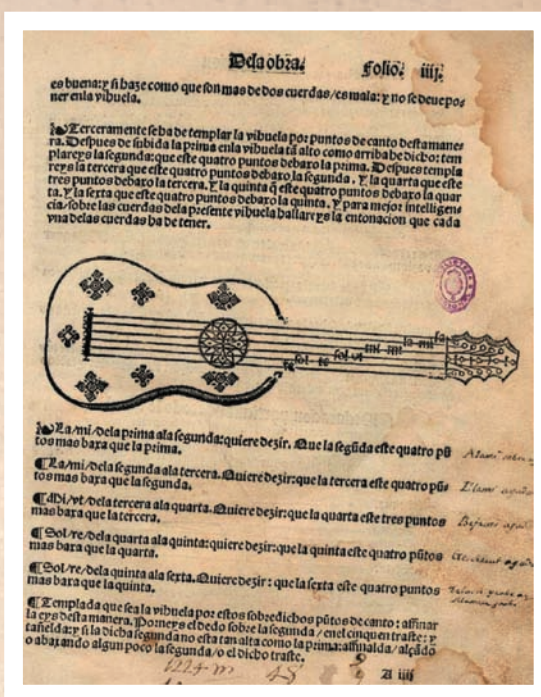 De la obra.
Folio. iiij.
es buena: y si haze como que son mas de dos cuerdas/es mala: y no se deue po-
ner enla vihuela.
Terceramente se ha de templar la vihuela por puntos de canto desta mane
ra. Despues de subida la prima enla vihuela tã alto como arriba he dicho: tem
plareys la segunda: que este quatro puntos debaxo la prima. Despues templa
reys la tercera que este quatro puntos debaxo la segunda. Y la quarta que este
tres puntos debaxo la tercera. Y la quinta q̃ este quatro puntos debaxo la quar
ta. Y la sexta que este quatro puntos debaxo la quinta. Y para mejor intelligen
cia/sobre las cuerdas dela presente vihuela hallareys la entonacion que cada
vna delas cuerdas ha de tener.
sol re sol vt mi mi la mi la
La/mi/dela prima ala segunda: quiere dezir. Que la segũda este quatro pũ
tos mas baxa que la prima.
¶ La/mi/dela segunda ala tercera. Quiere dezir: que la tercera este quatro pũ-
tos mas baxa que la segunda.
¶ Mi/vt/dela tercera ala quarta. Quiere dezir: que la quarta este tres puntos
mas baxa que la tercera.
¶ Sol/re/dela quarta ala quinta: quiere dezir: que la quinta este quatro pũtos
mas baxa que la quarta.
¶ Sol/re/dela quinta ala sexta. Quiere dezir: que la sexta este quatro puntos
mas baxa que la quinta.
¶ Templada que sea la vihuela por estos sobredichos pũtos de canto: affinar
la eys desta manera. Porneys el dedo sobre la segunda/enel cinquen traste: y
tañelda: y si la dicha segunda no esta tan alta como la prima: affinalda/alçãdo
o abaxando algun poco la segunda/o el dicho traste.
A iiij